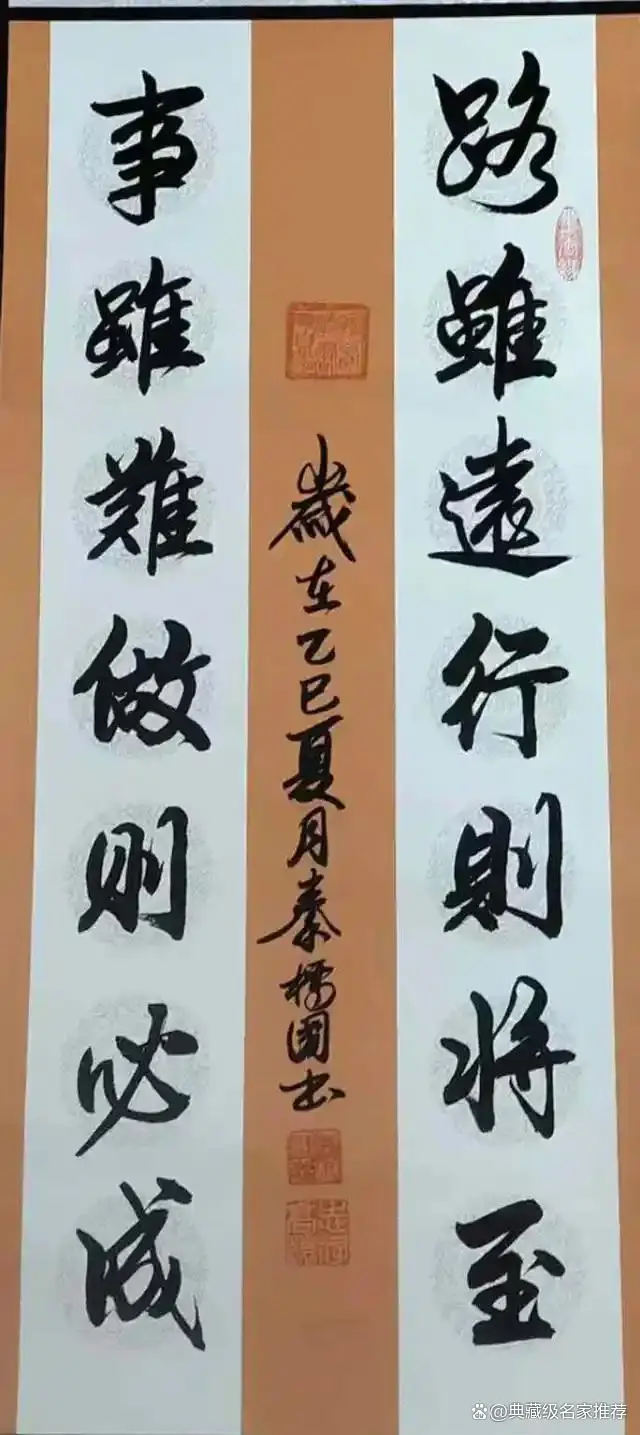 路雖遠行則將至
事雖難做则必成
歲在乙巳夏月秦橋國书
@典藏级名家推荐